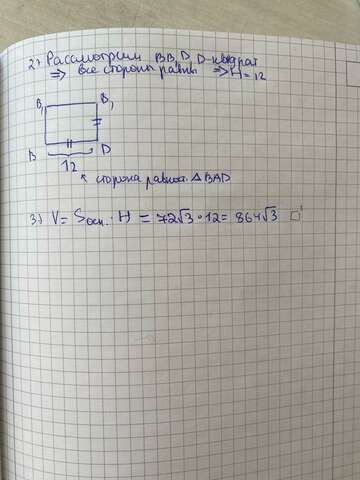 2.) Рассмотрим BB₁D₁D - квадрат
=> все стороны равны => H = 12
B₁ B₁
B D
12
сторона равност. △ BAD
3.) V = Sосн. · H = 72√3 · 12 = 864√3